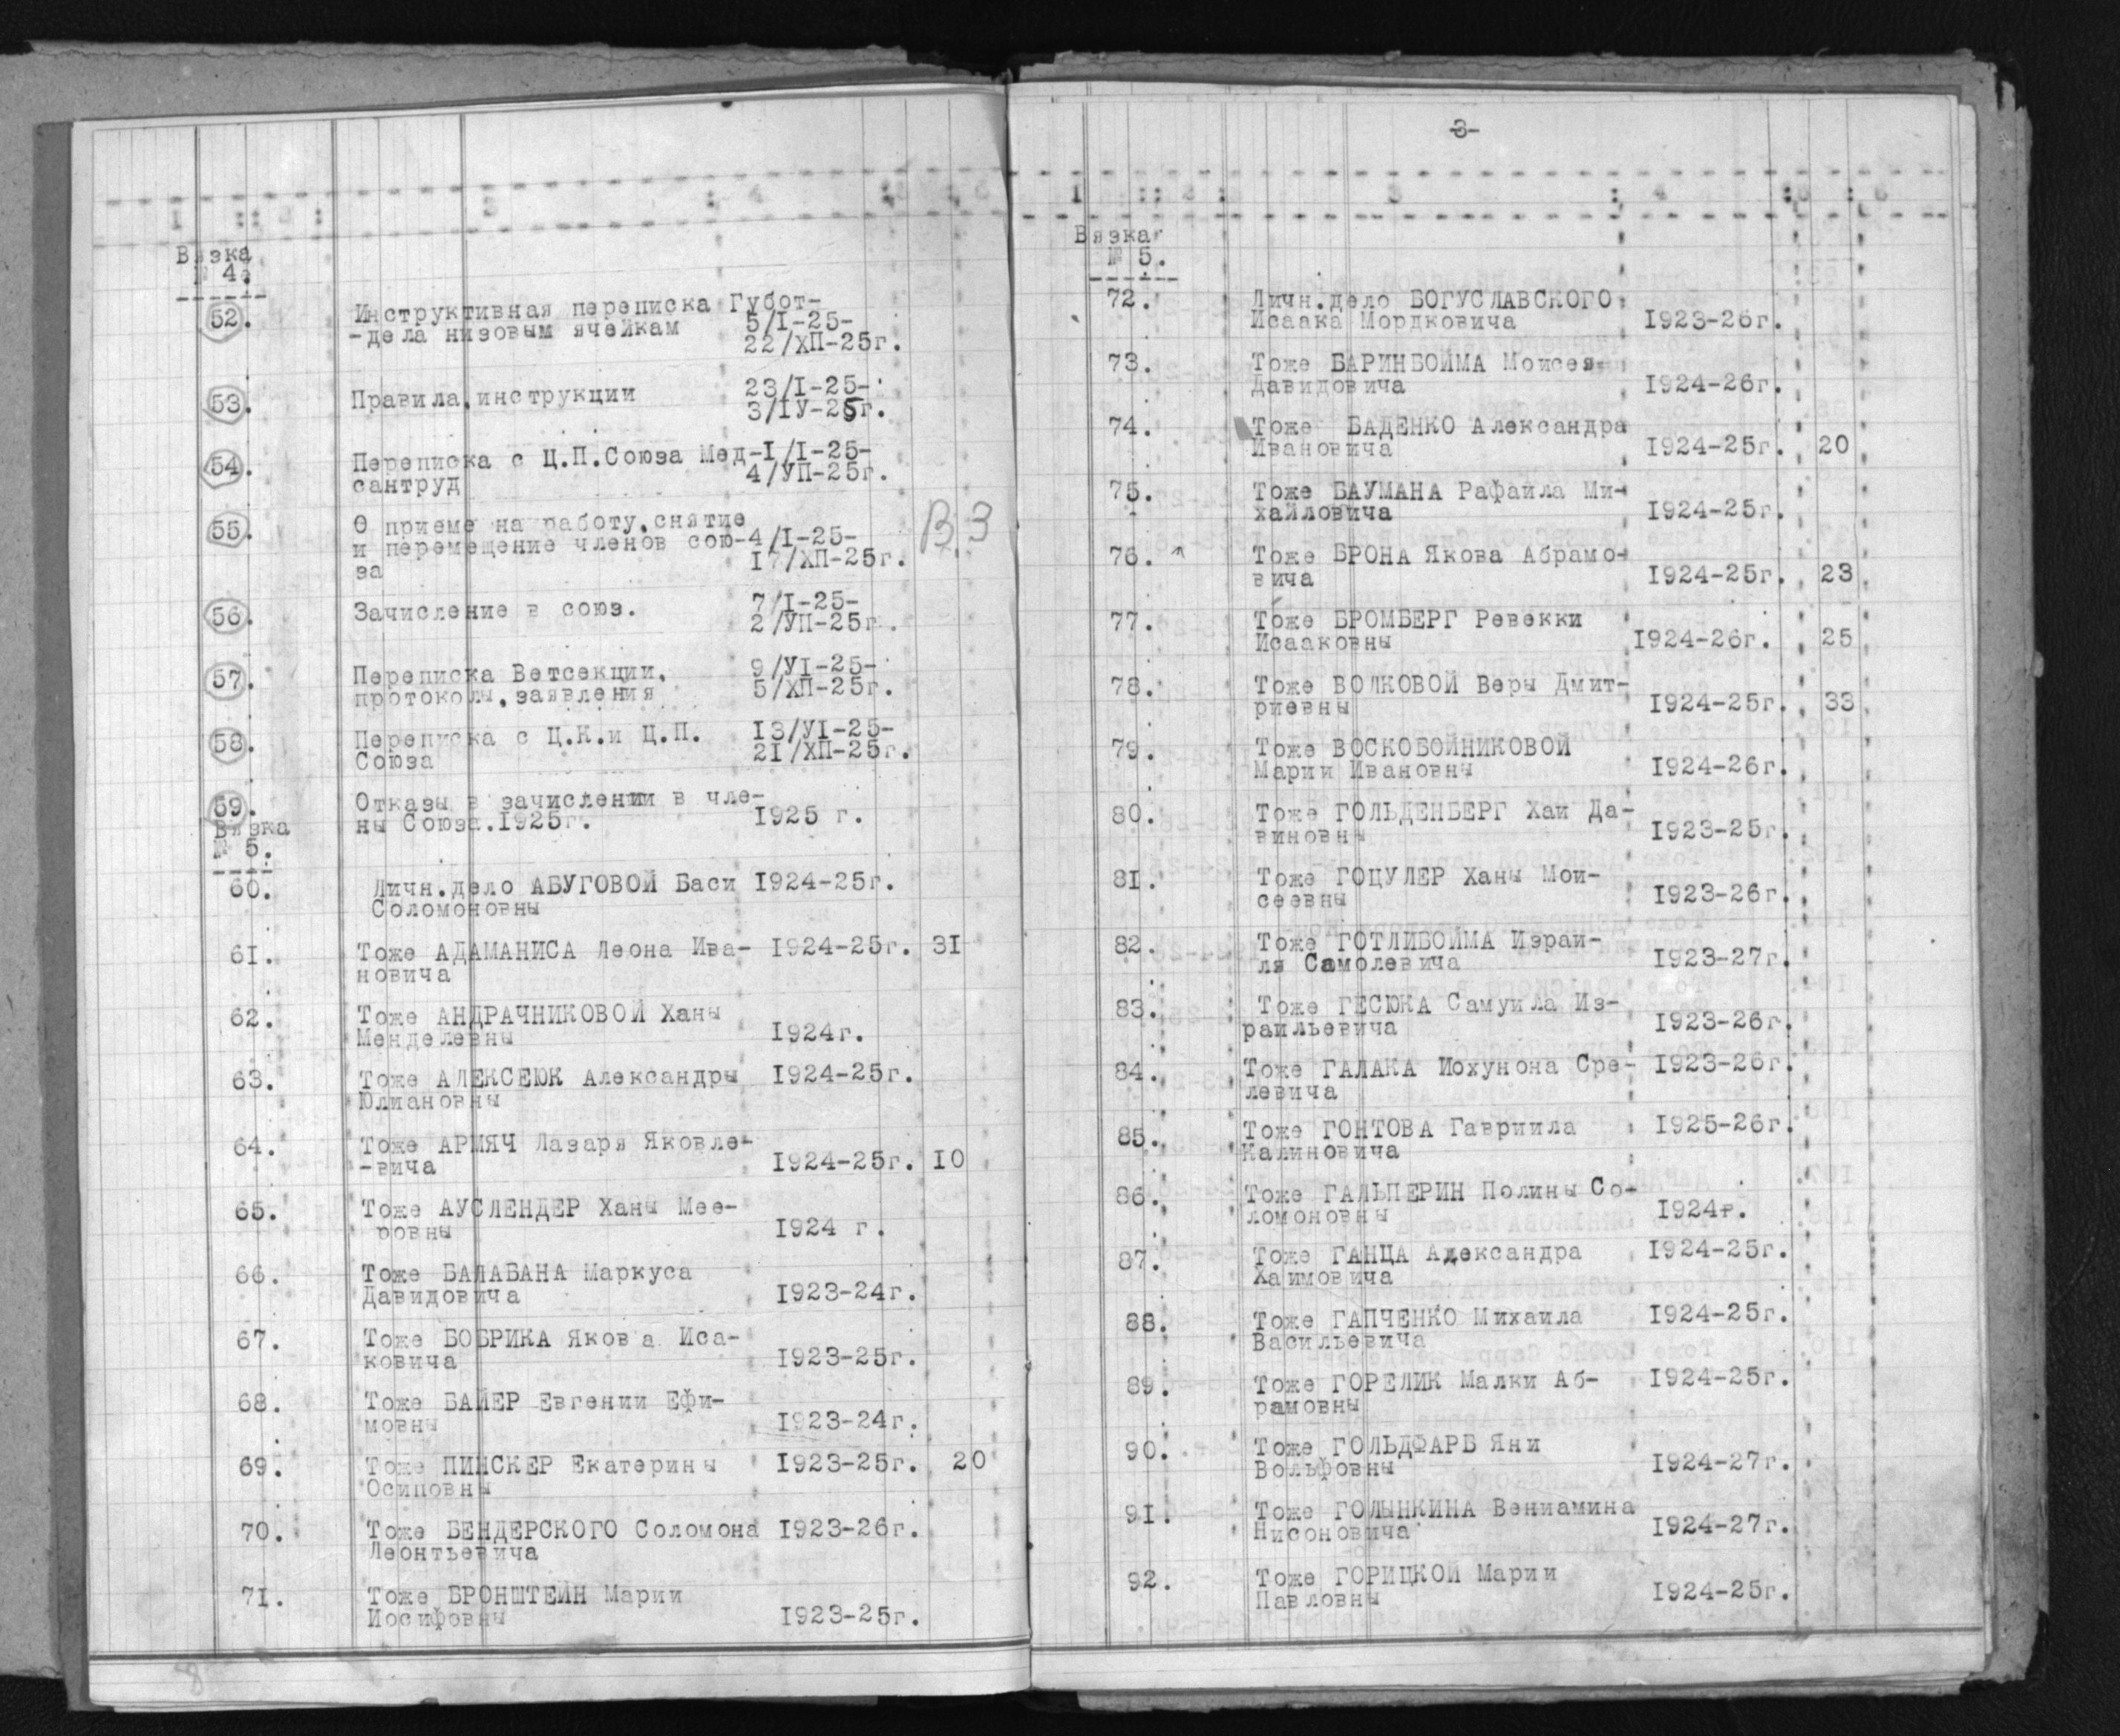 1 :: 2 : 3 : 4 : 5 : 6
Вязка
№ 4.
52. Инструктивная переписка Губот-
-дела низовым ячейкам 5/I-25-
22/ХП-25г.
53. Правила,инструкции 23/I-25-
3/IУ-25г.
54. Переписка с Ц.П.Союза Мед-I/I-25-
сантруд 4/УП-25г.
55. О приеме на работу,снятие
и перемещение членов сою-4/I-25-
за I7/ХП-25г.
В.3
56. Зачисление в союз. 7/I-25-
2/УП-25г.
57. Переписка Ветсекции, 9/УI-25-
протоколы,заявления 5/ХП-25г.
58. Переписка с Ц.К.и Ц.П. I3/УI-25-
Союза 2I/ХП-25г.
59. Отказы в зачислении в чле-
ны Союза.I925г. I925 г.
Вязка
№ 5.
60. Личн.дело АБУГОВОЙ Баси I924-25г.
Соломоновны
6I. Тоже АДАМАНИСА Леона Ива- I924-25г. 3I
новича
62. Тоже АНДРАЧНИКОВОЙ Ханы
Менделевны I924г.
63. Тоже АЛЕКСЕЮК Александры I924-25г.
Юлиановны
64. Тоже АРМЯЧ Лазаря Яковле-
-вича I924-25г. I0
65. Тоже АУСЛЕНДЕР Ханы Мее-
ровны I924 г.
66. Тоже БАЛАБАНА Маркуса
Давидовича I923-24г.
67. Тоже БОБРИКА Якова Иса-
ковича I923-25г.
68. Тоже БАЙЕР Евгении Ефи-
мовны I923-24г.
69. Тоже ПИНСКЕР Екатерины I923-25г. 20
Осиповны
70. Тоже БЕНДЕРСКОГО Соломона I923-26г.
Леонтьевича
7I. Тоже БРОНШТЕЙН Марии
Иосифовны I923-25г.
8
-3-
1 :: 2 : 3 : 4 : 5 : 6
Вязка
№ 5.
72. Личн.дело БОГУСЛАВСКОГО
Исаака Мордковича I923-26г.
73. Тоже БАРИНБОЙМА Моисея
Давидовича I924-26г.
74. Тоже БАДЕНКО Александра
Ивановича I924-25г. 20
75. Тоже БАУМАНА Рафаила Ми-
хайловича I924-25г.
76. Тоже БРОНА Якова Абрамо-
вича I924-25г. 23
77. Тоже БРОМБЕРГ Ревекки
Исааковны I924-26г. 25
78. Тоже ВОЛКОВОЙ Веры Дмит-
риевны I924-25г. 33
79. Тоже ВОСКОБОЙНИКОВОЙ
Марии Ивановны I924-26г.
80. Тоже ГОЛЬДЕНБЕРГ Хаи Да-
виновны I923-25г.
8I. Тоже ГОЦУЛЕР Ханы Мои-
сеевны I923-26г.
82. Тоже ГОТЛИБОЙМА Израи-
ля Самолевича I923-27г.
83. Тоже ГЕСЮКА Самуила Из-
раильевича I923-26г.
84. Тоже ГАЛАКА Иохунона Сре- I923-26г.
левича
85. Тоже ГОНТОВА Гавриила I925-26г.
Калиновича
86. Тоже ГАЛЬПЕРИН Полины Со-
ломоновны I924г.
87. Тоже ГАНЦА Александра I924-25г.
Хаимовича
88. Тоже ГАПЧЕНКО Михаила I924-25г.
Васильевича
89. Тоже ГОРЕЛИК Малки Аб- I924-25г.
рамовны
90. Тоже ГОЛЬДФАРБ Яни
Вольфовны I924-27г.
9I. Тоже ГОЛЫНКИНА Вениамина
Нисоновича I924-27г.
92. Тоже ГОРИЦКОЙ Марии
Павловны I924-25г.